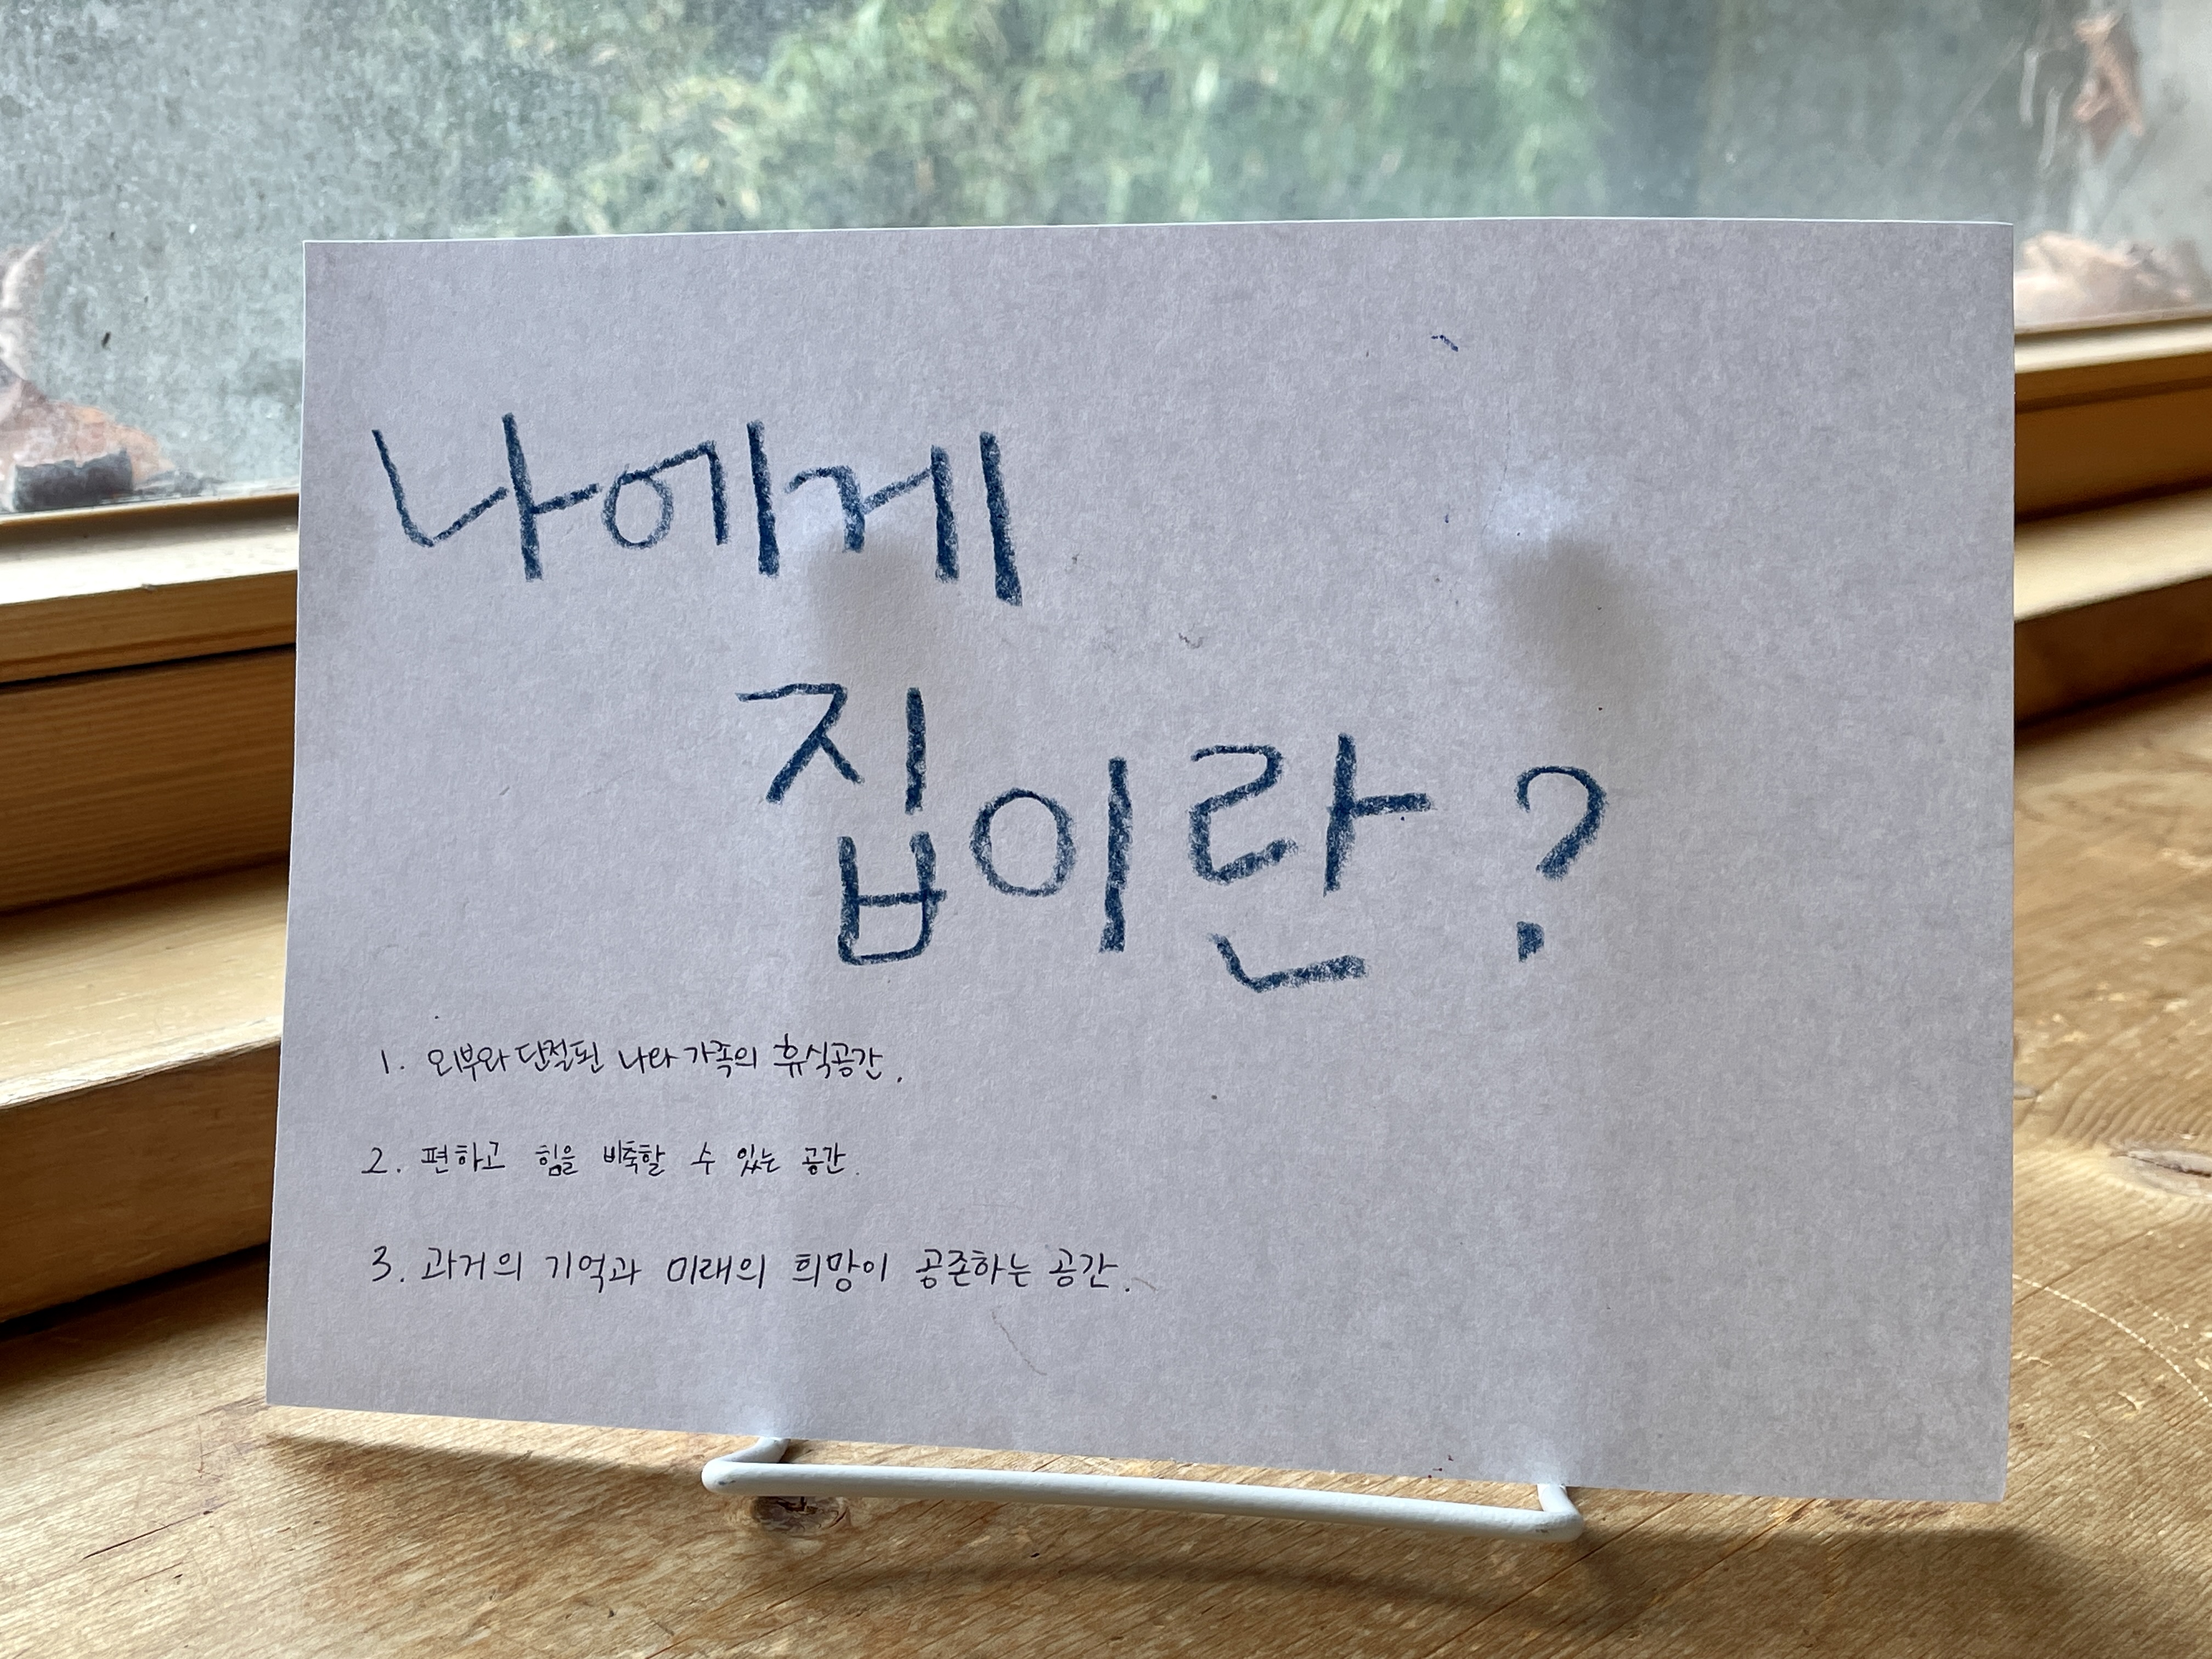 나에게
집이란?
1. 외부와 단절된 나와 가족의 휴식공간.
2. 편하고 힘을 비축할 수 있는 공간.
3. 과거의 기억과 미래의 희망이 공존하는 공간.